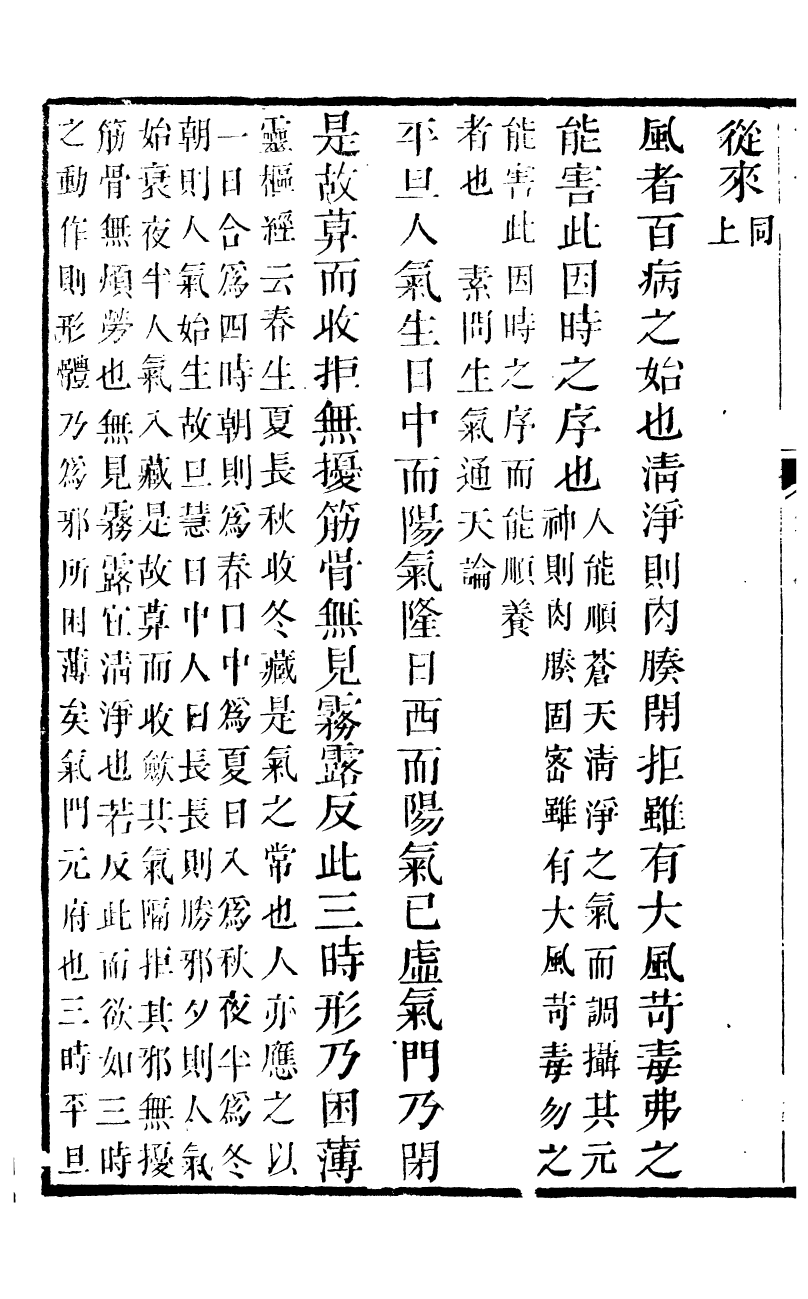 從來同上
風者百病之始也淸淨則肉腠閉拒雖有大風苛毒弗之
能害此因時之序也人能順蒼天淸淨之氣而調攝其元
神則肉腠固密雖有大風苛毒勿之
能害此因時之序而能順養
者也　素問生氣通天論
平旦人氣生日中而陽氣隆日西而陽氣已虛氣門乃閉
是故暮而收拒無擾筋骨無見霧露反此三時形乃困薄
靈樞經云春生夏長秋收冬藏是氣之常也人亦應之以
一日合爲四時朝則爲春日中爲夏日入爲秋夜半爲冬
朝則人氣始生故旦慧日中人日長長則勝邪夕則人氣
始衰夜半人氣入藏是故暮而收斂其氣隔拒其邪無擾
筋骨無煩勞也無見霧露宜淸淨也若反此而欲如三時
之動作則形體乃爲邪所困薄矣氣門元府也三時平旦